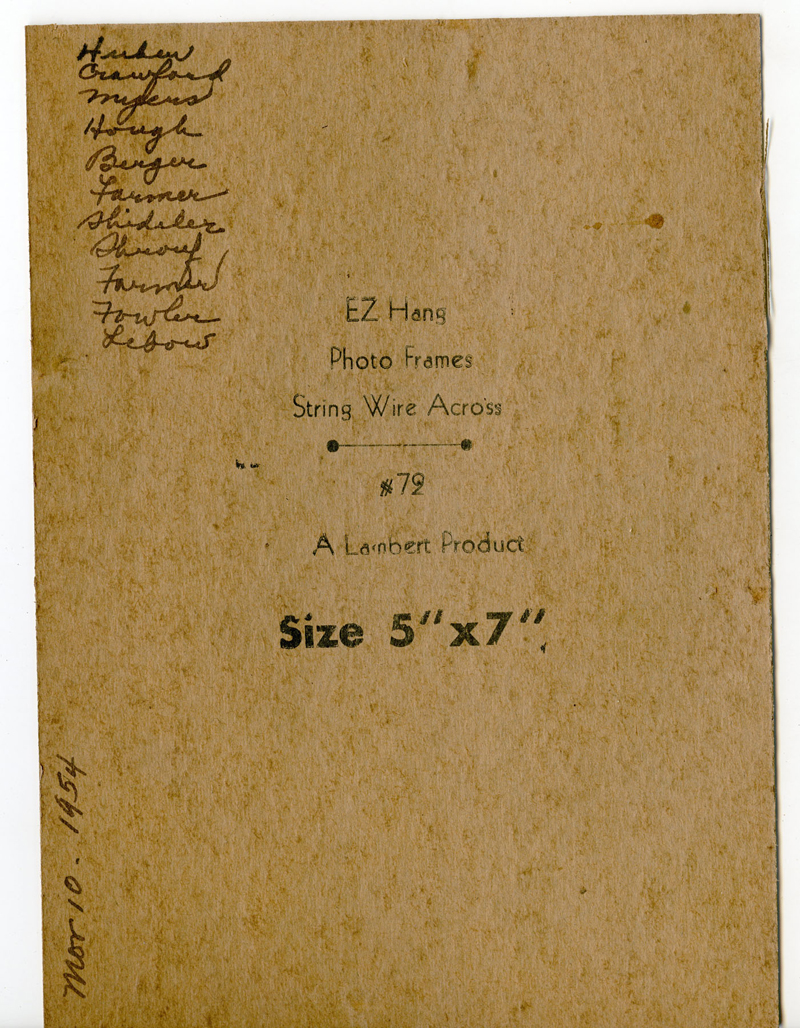 Huber
Crawford
Myers
Hough
Berger
Farmer
Shideler
Shrouf
Farmer
Fowler
Lebow
EZ Hang
Photo Frames
String Wire Across
#79
A Lambert Product
Size 5"x7"
Mar 10 - 1954